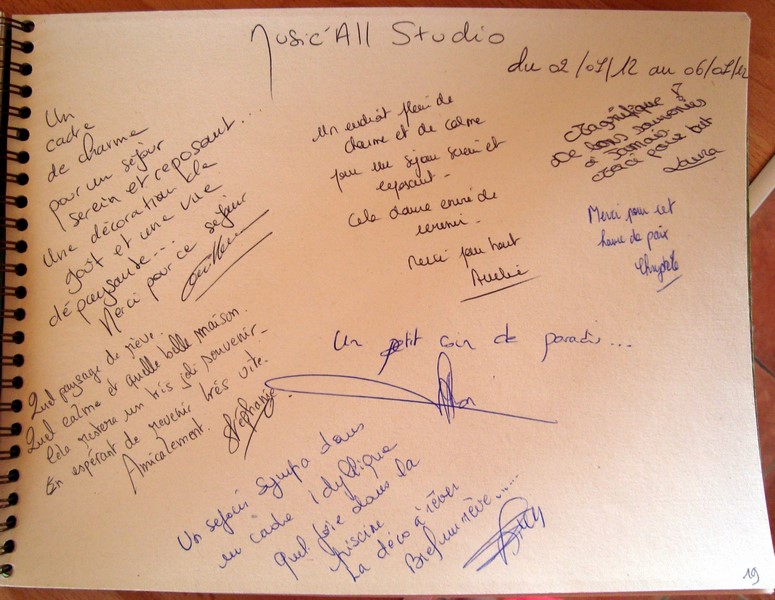 Music'All Studio
du 02/07/12 au 06/07/12
Un
cadre
de charme
pour un séjour
serein et reposant...
Une décoration de
goût et une vue
dépaysante...
Merci pour ce séjour
Un endroit plein de
charme et de calme
pour un séjour serein et
reposant -
Cela donne envie de
revenir -
Merci pour tout
Aurélie
Magnifique !
De bons souvenirs
à Jamais.
Merci pour tout
Laura
Merci pour cet
havre de paix
Quel paysage de rêve.
Quel calme et quelle belle maison.
Cela restera un très joli souvenir -
En espérant de revenir très vite -
Amicalement.
Stéphanie
Un petit coin de paradis...
Un séjour sympa dans
un cadre idyllique
quel joie dans la
piscine
La déco à rêver
Bref un rêve.....
19